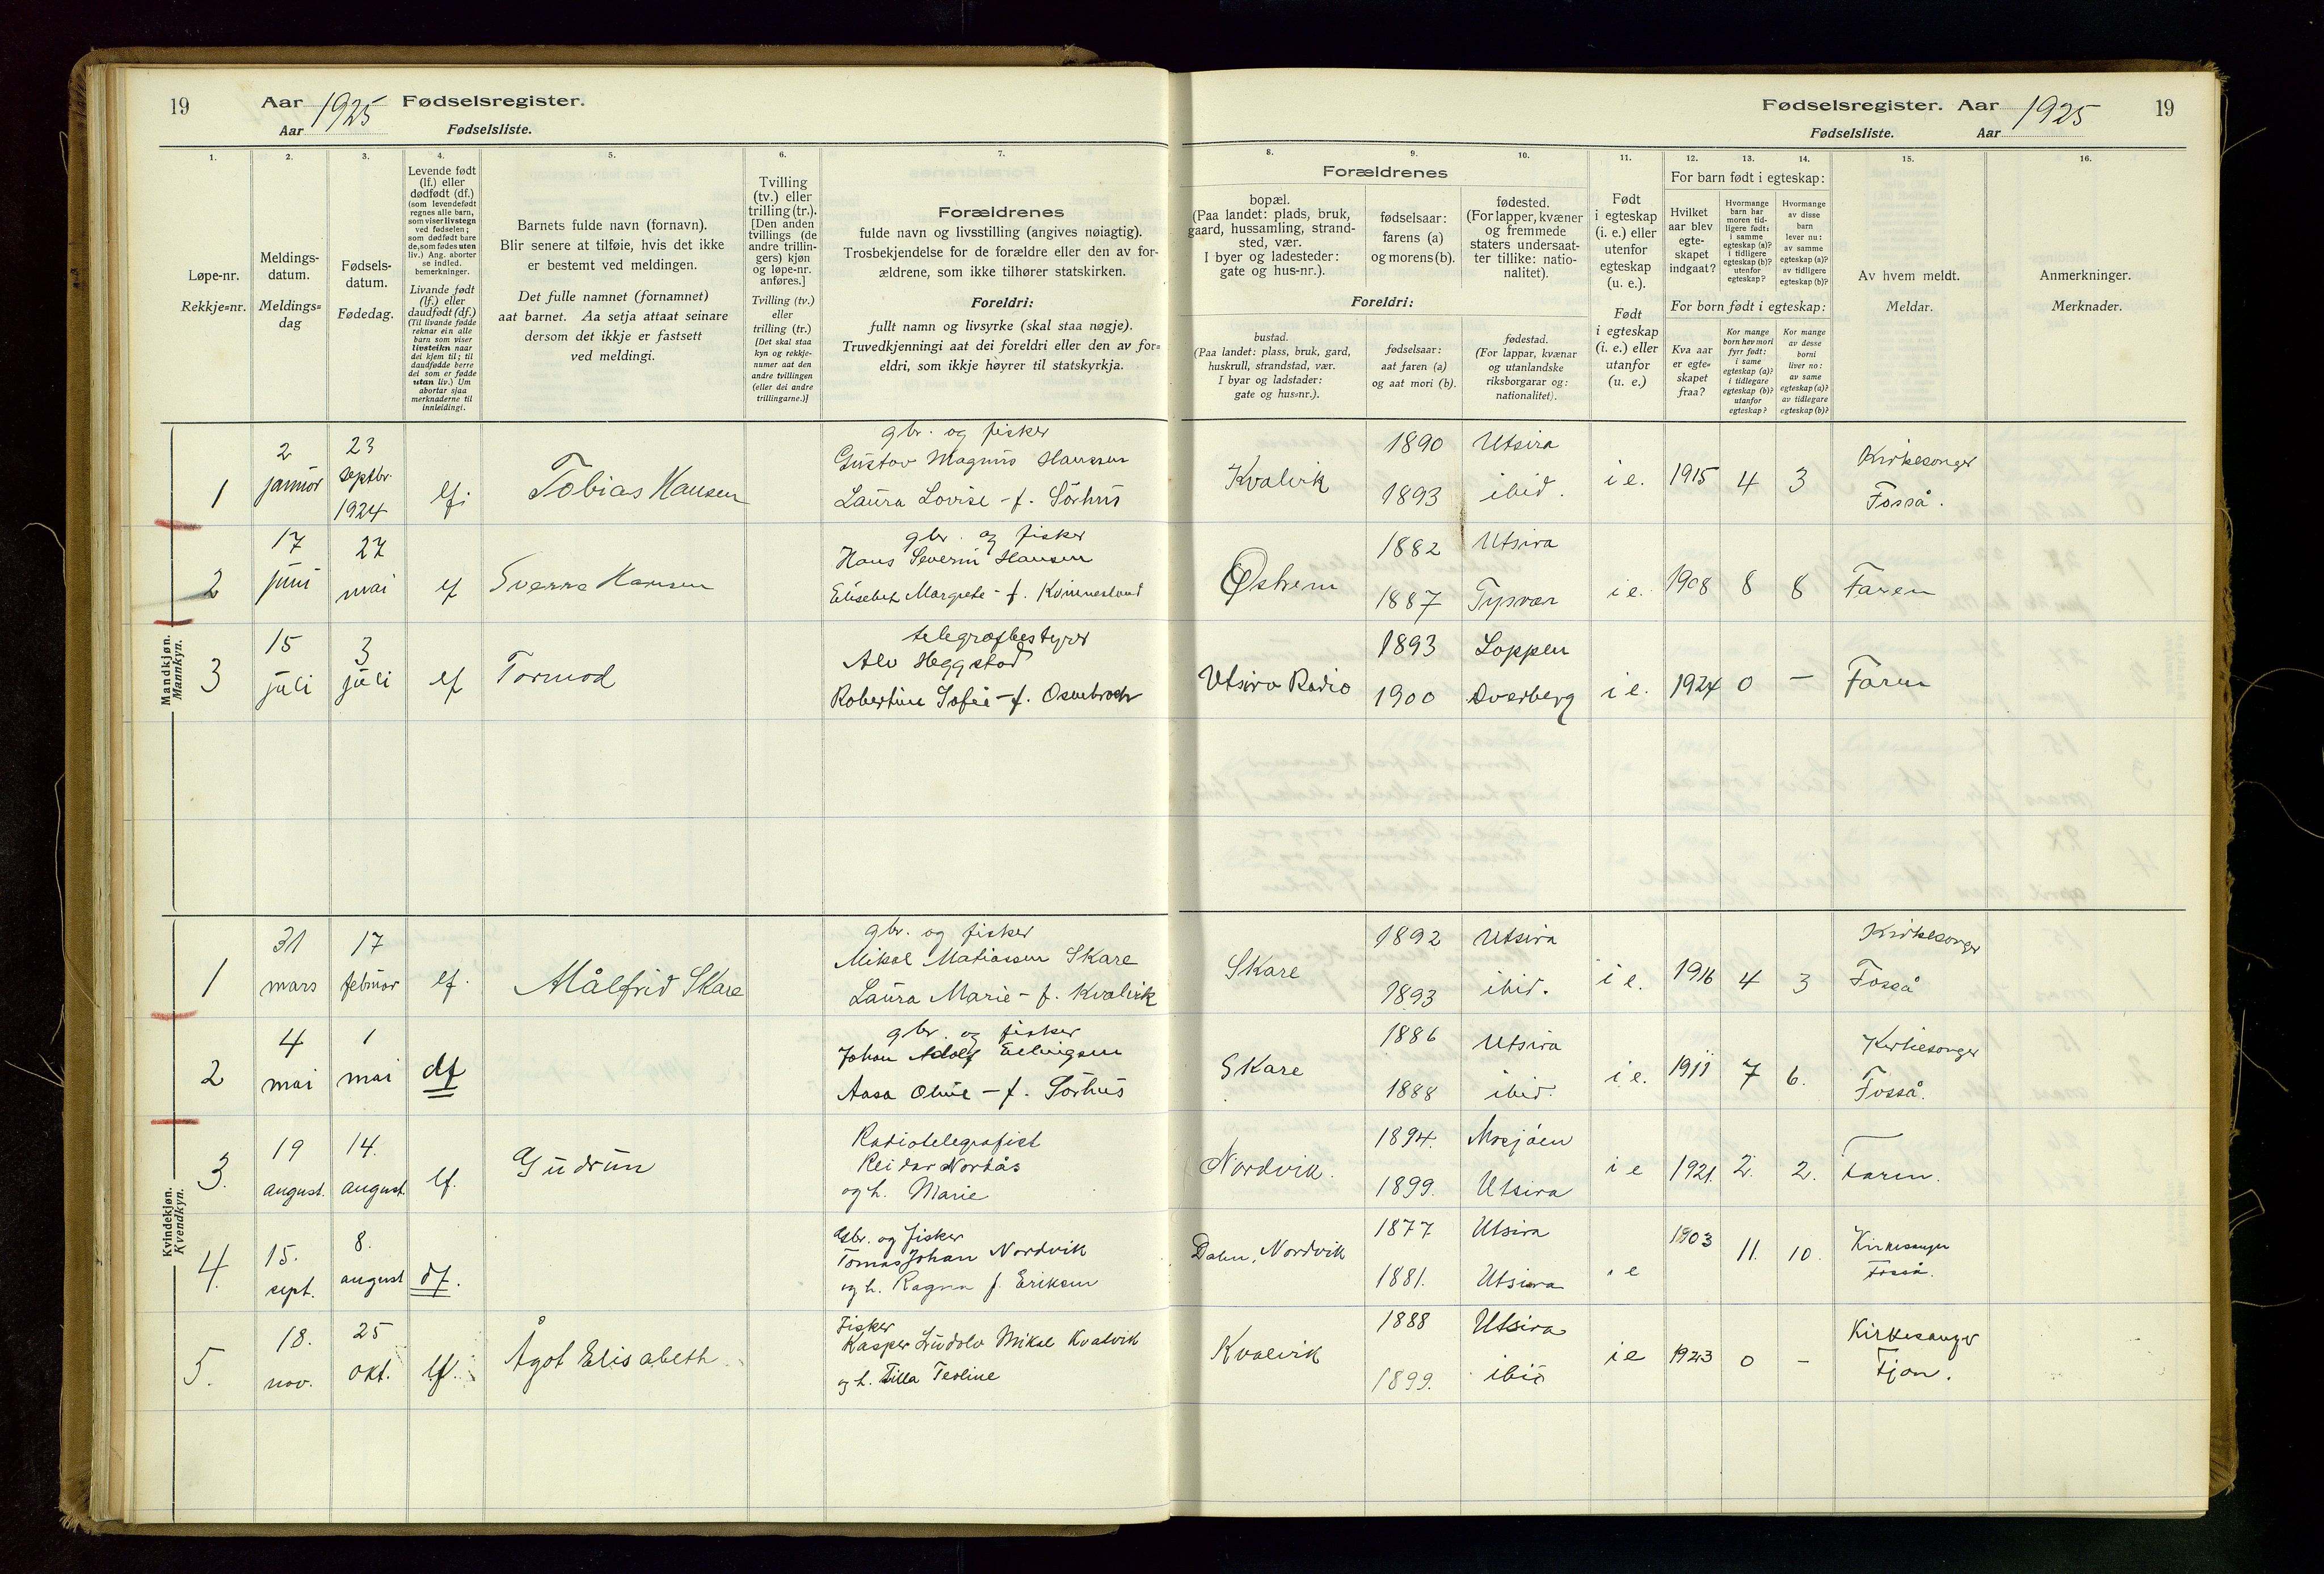 19 Aar 1925 Fødselsregister.
Aar Fødselsliste.
Fødselsregister. Aar 1925 19
Fødselsliste. Aar
1. 2. 3. 4. 5. 6. 7.
Løpe-nr.
Rekkje=nr.
Meldings-
datum.
Meldings=
dag
Fødsels-
datum.
Fødedag.
Levende født
(lf.) eller
dødfødt (df.)
(som levendefødt
regnes alle barn,
som viser livstegn
ved fødselen;
som dødfødt bare
de, som fødes uten
liv.) Ang. aborter
se indled.
bemerkninger.
Livande født
(lf.) eller
daudfødt (df.)
(Til livande fødde
reknar ein alle
barn som viser
livsteikn naar
dei kjem til; til
daudfødde berre
dei som er fødde
utan liv.) Um
abortar sjaa
merknaderne til
innleidingi.
Barnets fulde navn (fornavn).
Blir senere at tilføie, hvis det ikke
er bestemt ved meldingen.
Det fulle namnet (fornamnet)
aat barnet. Aa setja attaat seinare
dersom det ikkje er fastsett
ved meldingi.
Tvilling
(tv.) eller
trilling (tr.).
[Den anden
tvillings (de
andre trillin-
gers) kjøn
og løpe-nr.
anføres.]
Tvilling (tv.)
eller
trilling (tr.)
[Det skal staa
kyn og rekkje-
numer aat den
andre tvillingen
(eller dei andre
trillingarne.)]
Forældrenes
fulde navn og livsstilling (angives nøiagtig).
Trosbekjendelse for de forældre eller den av for-
ældrene, som ikke tilhører statskirken.
Foreldri:
fullt namn og livsyrke (skal staa nøgje).
Truvedkjenningi aat dei foreldri eller den av for=
eldri, som ikkje høyrer til statskyrkja.
8. 9. 10. 11. 12. 13. 14. 15. 16.
Forældrenes
bopæl.
(Paa landet: plads, bruk,
gaard, hussamling, strand-
sted, vær.
I byer og ladesteder:
gate og hus-nr.).
fødselsaar:
farens (a)
og morens (b).
fødested.
(For lapper, kvæner
og fremmede
staters undersaat-
ter tillike: natio-
nalitet).
Foreldri:
bustad.
(Paa landet: plass, bruk, gard,
huskrull, strandstad, vær.
I byar og ladstader:
gate og hus=nr.).
fødselsaar:
aat faren (a)
og aat mori (b).
fødestad.
(For lappar, kvænar
og utanlandske
riksborgarar og:
nationalitet).
Født
i egteskap
(i. e.) eller
utenfor
egteskap
(u. e.).
Født
i egteskap
(i. e.) eller
utanfor
(u. e.)
For barn født i egteskap:
Hvilket
aar blev
egte-
skapet
indgaat?
Hvormange
barn har
moren tid-
ligere født:
i samme
egteskap (a)?
i tidligere
egteskap (b)?
utenfor
egteskap?
Hvormange
av disse
barn
lever nu:
av samme
egteskap (a)?
av tidligere
egteskap (b)?
For born født i egteskap:
Kva aar
er egte=
skapet
fraa?
Kor mange
born hev mori
fyrr født:
i same
egteskap (a)?
i tidlegare
egteskap (b)?
utanfor
egteskap?
Kor mange
av desse
borni
liver no:
av same
egteskap (a)?
av tidlegare
egteskap (b)?
Av hvem meldt.
Meldar.
Anmerkninger.
Merknader.
Mandkjøn.
Mannkyn.
1
2
januar
23
septbr.
1924
lf.
Tobias Hansen
gbr. og fisker
Gustav Magnus Hansen
Laura Lovise - f. Sørhus
Kvalvik
1890 Utsira
1893 ibid.
i e. 1915 4 3
Kirkesanger
Fosså.
2
17
juni
27
mai
lf
Sverre Hansen
gbr. og fisker
Hans Severin Hansen
Elisebet Margrete - f. Kvinnesland
Østrem
1882 Utsira
1887 Tysvær
i e. 1908 8 8
Faren
3
15
juli
3
juli
lf
Tormod
telegrafbestyrer
Alv Heggstad
Robertine Sofie - f. Osnebrock
Utsira Radio
1893 Loppen
1900 Dverberg
i e. 1924 0 -
Faren
Kvindekjøn.
Kvendkyn.
1
31
mars
17
februar
lf.
Målfrid Skare
gbr. og fisker
Mikal Matiassen Skare
Laura Marie - f. Kvalvik
Skare
1892 Utsira
1893 ibid.
i e. 1916 4 3
Kirkesanger
Fosså
2
4
mai
1
mai
df
gbr. og fisker
Johan Adolf Ellingsen
Aasa Oline - f. Sørhus
Skare
1886 Utsira
1888 ibid.
i e. 1911 7 6.
Kirkesanger
Fosså.
3.
19
august.
14.
august.
lf.
Gudrun
Radiotelegrafist
Reidar Nordås
og h. Marie
Nordvik.
1894. Mosjøen
1899. Utsira
i e 1921. 2. 2.
Faren.
4.
15.
sept.
8.
august
df.
Gbr. og fisker
Tomas Johan Nordvik
og h. Ragna f. Eriksen
Dalen, Nordvik
1877 Utsira
1881. Utsira
i e 1903 11. 10.
Kirkesanger
Fosså.
5.
18.
nov.
25
okt.
lf.
Ågot Elisabeth
Fisker
Kasper Ludolv Mikal Kvalvik
og h. Tilla Teoline
Kvalvik
1888 Utsira
1899. ibid
i e 1923 0 -
Kirkesanger
Fjon.